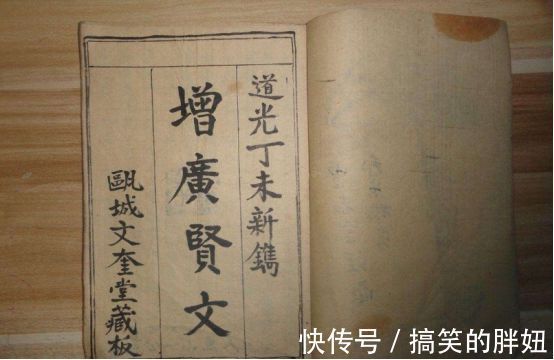 道光丁未新鐫
增廣賢文
甌城文奎堂藏板
快传号 / 搞笑的胖妞